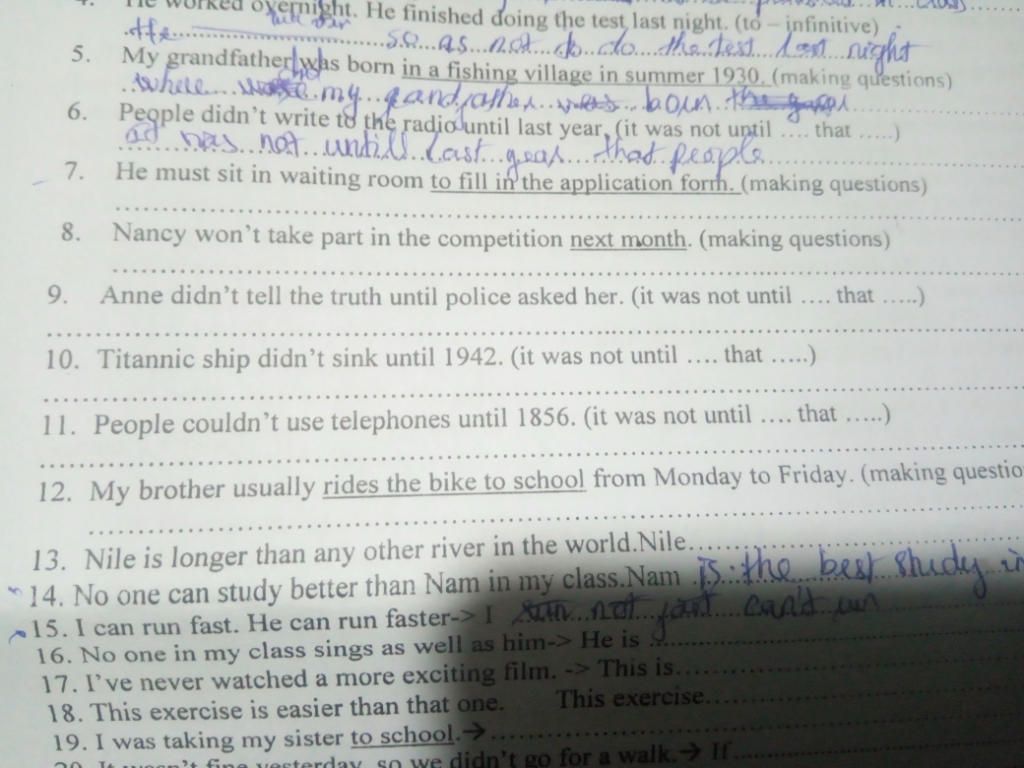 He worked overnight. He finished doing the test last night. (to – infinitive)
He so as not to do the test last night
5. My grandfather was born in a fishing village in summer 1930. (making questions)
where my was born
6. People didn't write to the radio until last year. (it was not until .... that .....)
was not untill last year that people
7. He must sit in waiting room to fill in the application form. (making questions)
8. Nancy won't take part in the competition next month. (making questions)
9. Anne didn't tell the truth until police asked her. (it was not until .... that .....)
10. Titannic ship didn't sink until 1942. (it was not until .... that .....)
11. People couldn't use telephones until 1856. (it was not until .... that .....)
12. My brother usually rides the bike to school from Monday to Friday. (making questio
13. Nile is longer than any other river in the world.Nile
14. No one can study better than Nam in my class.Nam is the best study in
15. I can run fast. He can run faster-> I not can't run
16. No one in my class sings as well as him-> He is
17. I've never watched a more exciting film. -> This is
18. This exercise is easier than that one. This exercise
19. I was taking my sister to school.→
20. It wasn't fine yesterday, so we didn't go for a walk.→ If